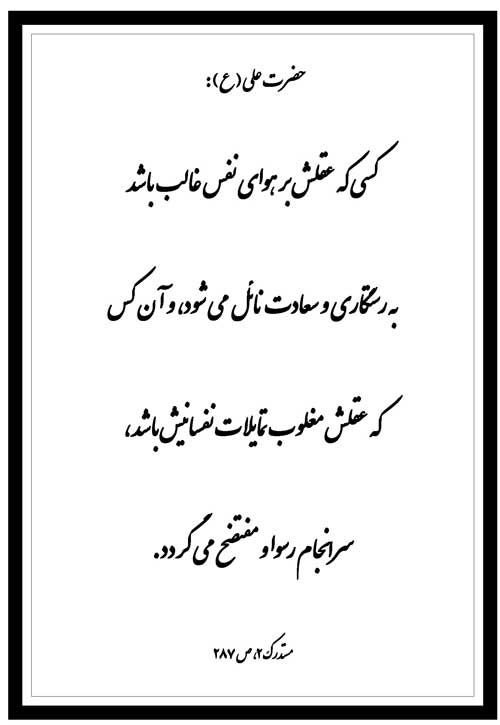 حضرت علی (ع):
کسی که عقلش بر هوای نفس غالب باشد
به رستگاری و سعادت نائل می شود، و آن کس
که عقلش مغلوب تمایلات نفسانیش باشد،
سرانجام رسوا و مفتضح می گردد.
مستدرک ۲، ص ۲۸۷